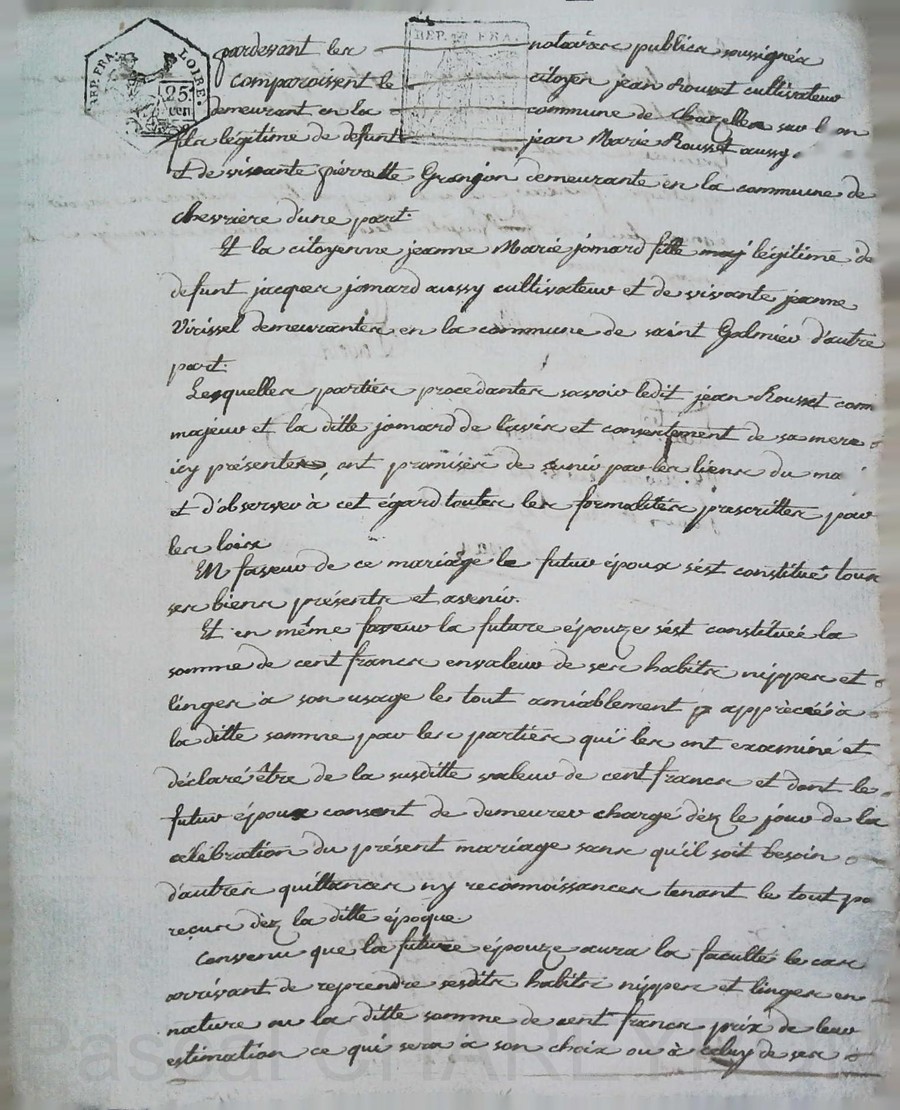 REP. FRA. LOIRE.
25. cen
REP. FRA.
pardevant les notaires publics soussignés
comparoissent le citoyen jean Rousset cultivateur
demeurant en la commune de chazelles sur l on
fils légitime de defunt jean Marie Rousset aussy.
et de vivante pierrette Granjon demeurante en la commune de
chevriere d'une part.
Et la citoyenne jeanne Marie jomard fille maj légitime de
defunt jacques jomard aussy cultivateur et de vivante jeanne
Virissel demeurantes en la commune de saint Galmier d'autre
part.
Lesquelles parties procedantes savoir ledit jean Rousset com
majeur et la ditte jomard de l'avis et consentement de sa mere
icy présente, ont promises de s'unir par les liens du ma
et d'observer à cet égard toutes les formalités prescrittes par
les loix
En faveur de ce mariage le futur époux s'est constitué tous
ses biens présents et avenir.
Et en même faveur la future épouze s'est constituée la
somme de cent francs en valeur de ses habits nippes et
linges à son usage le tout amiablement apprécié à
la ditte somme par les parties qui les ont examiné et
déclaré être de la susditte valeur de cent francs et dont le
futur époux consent de demeurer chargé dèz le jour de la
célébration du présent mariage sans qu'il soit besoin
d'autres quittances ny reconnoissances tenant le tout po
reçus dèz la ditte époque.
Convenu que la future épouze aura la faculté le cas
arrivant de reprendre sesdits habits nippes et linges en
nature ou la ditte somme de cent francs prix de leur
estimation ce qui sera à son choix ou à celuy de ses
Pascal CHAREYRON